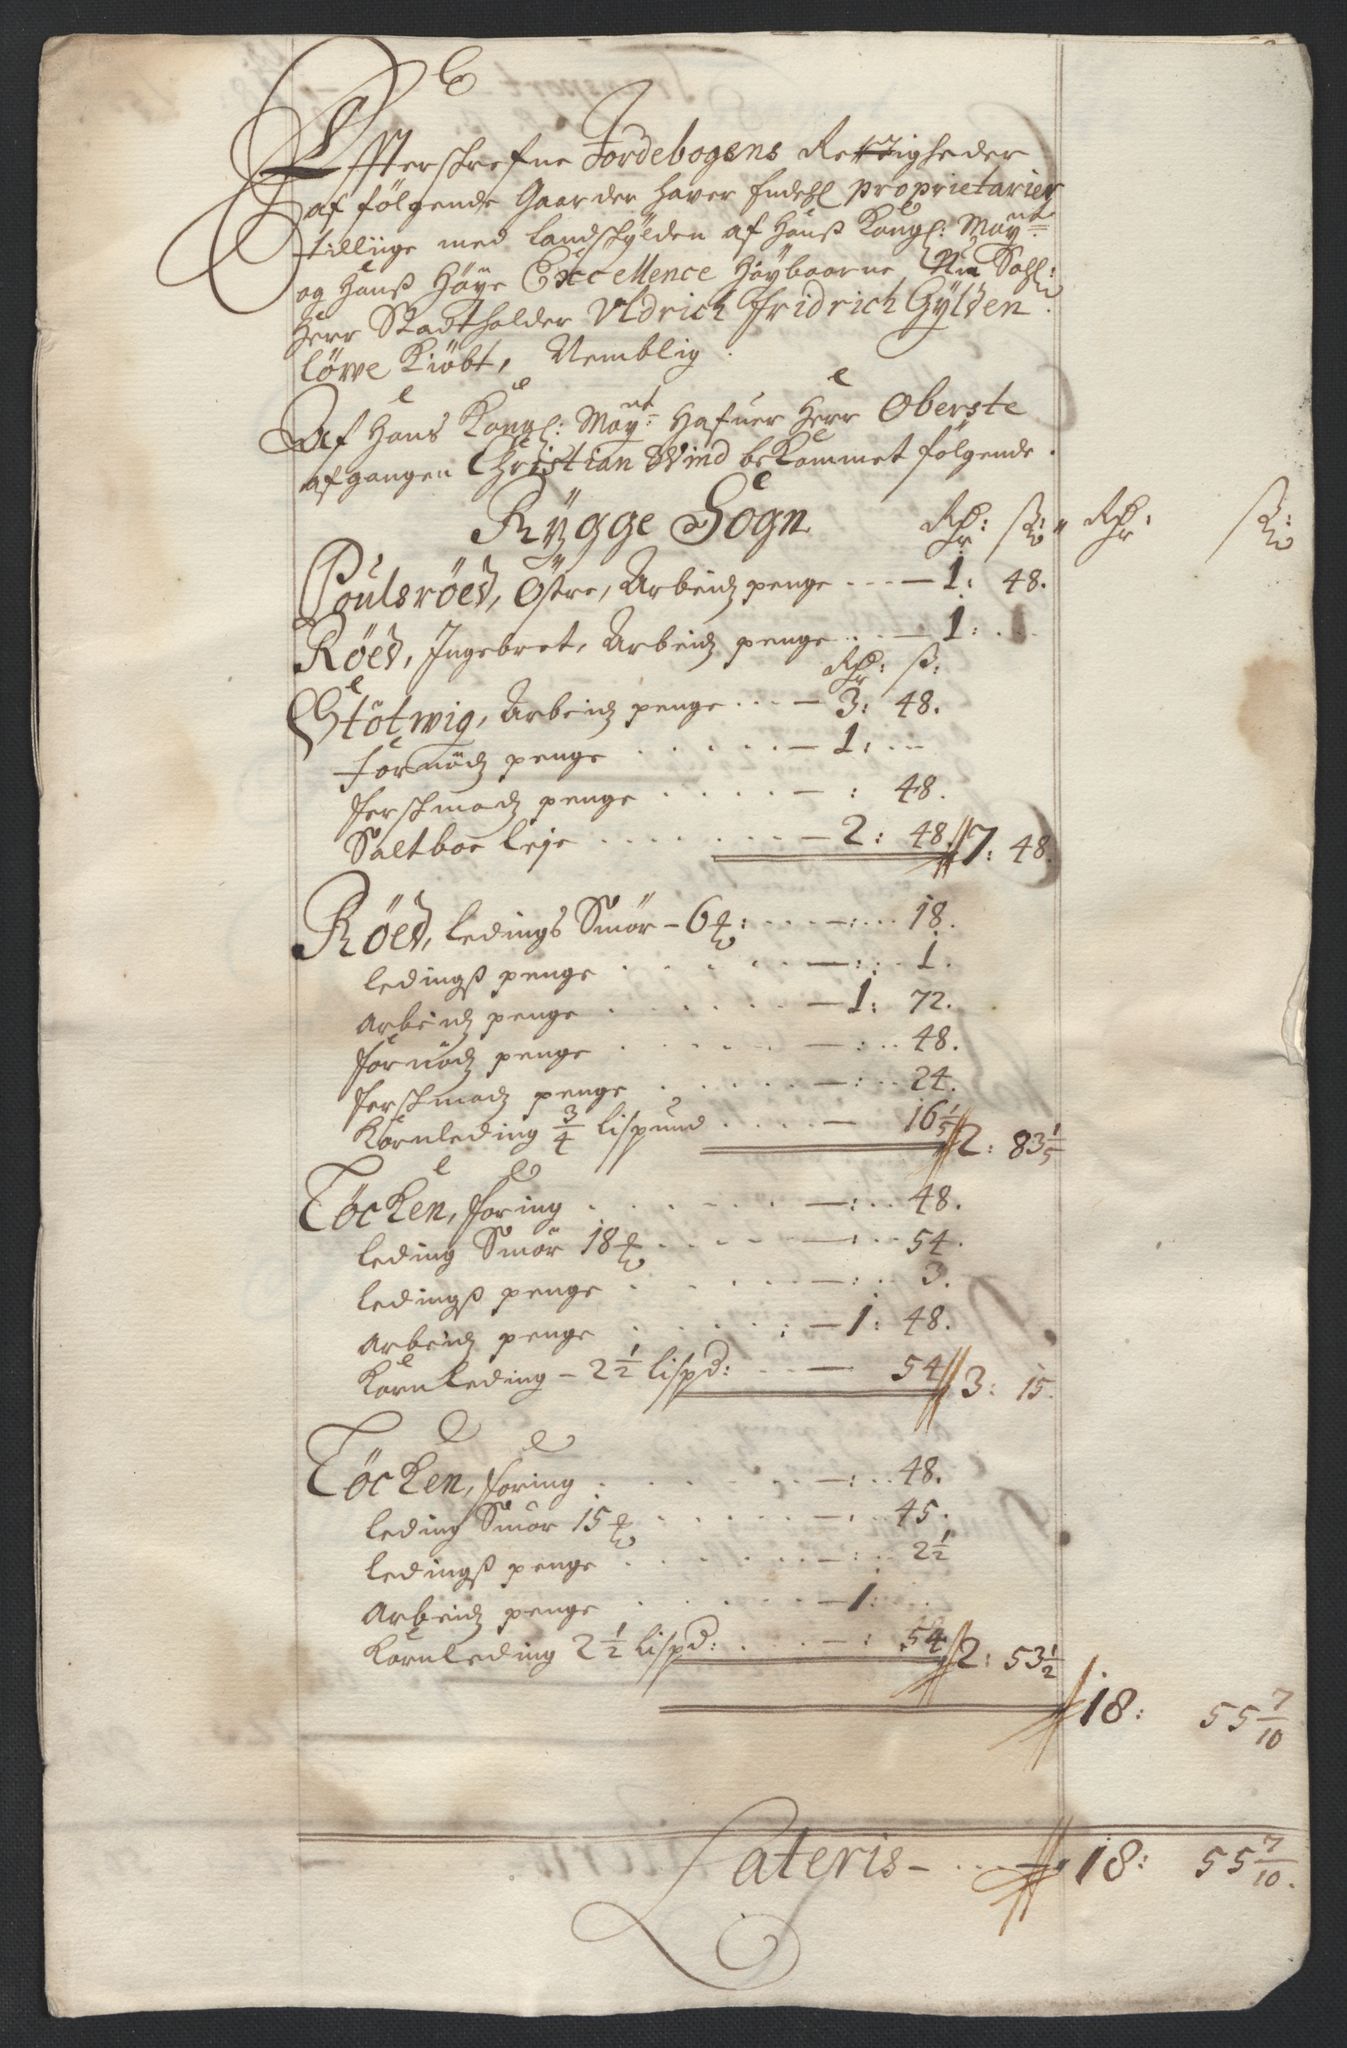 Effterschrefne Jordebogens Rettigheder
af følgende Gaarder haver Endehl proprietarier
tilliige med Landschÿlden af Hanß Kongl: Mayt:
og Hanß Höye Excellence Höybaarne Sahl:
Herr Stadtholder Uldrich Fridrich Gÿlden
löwe Kiöbt, Nemblig:
Af Hans Kongl: Mayt: Hafuer Herr Oberste
afgangen Christian Wind bekommet følgende.
Rÿgge Sogn Rdr: ß: Rdr: ß:
Poulsröed, Östre, Arbeidz penge - 1: 48.
Röed, Ingebret, Arbeidz penge - 1:
Rdr: ß:
Störtwig, Arbeidz penge - 3: 48.
Fornödz penge - 1:
ferschmadz penge - : 48.
Saltboe leje - 2: 48. 7: 48.
Röed, ledings Smör - 6 ℔: - : 18.
ledingß penge - : 1.
Arbeidz penge - 1: 72.
fornödz penge - : 48.
ferschmadz penge - : 24.
Kornleding 3/4 lispund - 16 1/5 2: 83 1/5
Töcken, foring - : 48.
leding Smör 18 ℔ - : 54.
ledingß penge - : 3.
Arbeidz penge - 1: 48.
Kornleding - 2 1/2 lispd: - 54 3: 15.
Töcken, foring - : 48.
leding Smör 15 ℔ - : 45.
ledingß penge - : 2 1/2
Arbeidz penge - 1:
Kornleding 2 1/2 lispd: - : 54 2: 53 1/2
18: 55 7/10
Lateris - 18: 55 7/10.